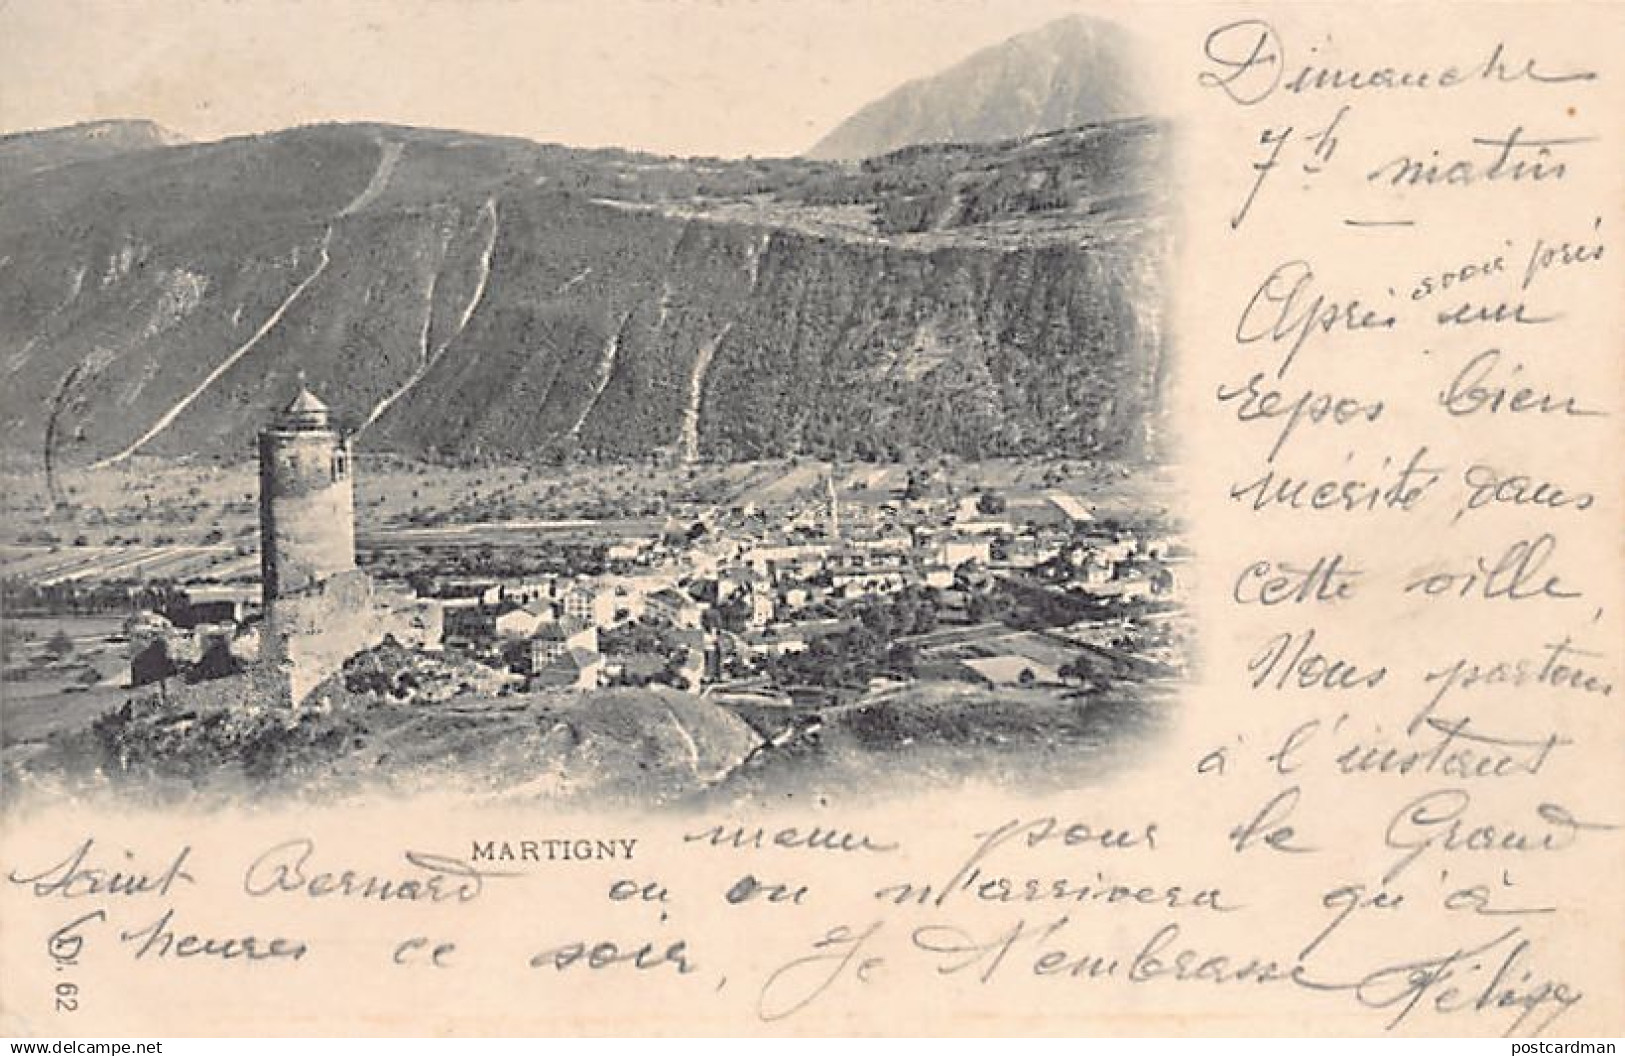 Dimanche
7h matin
—
Après avoir pris un
repos bien
mérité dans
cette ville,
Nous partons
à l'instant
même pour le Grand
Saint Bernard ou on n'arrivera qu'à
6 heures ce soir, Je t'embrasse
MARTIGNY
J. 62
www.delcampe.net
postcardman